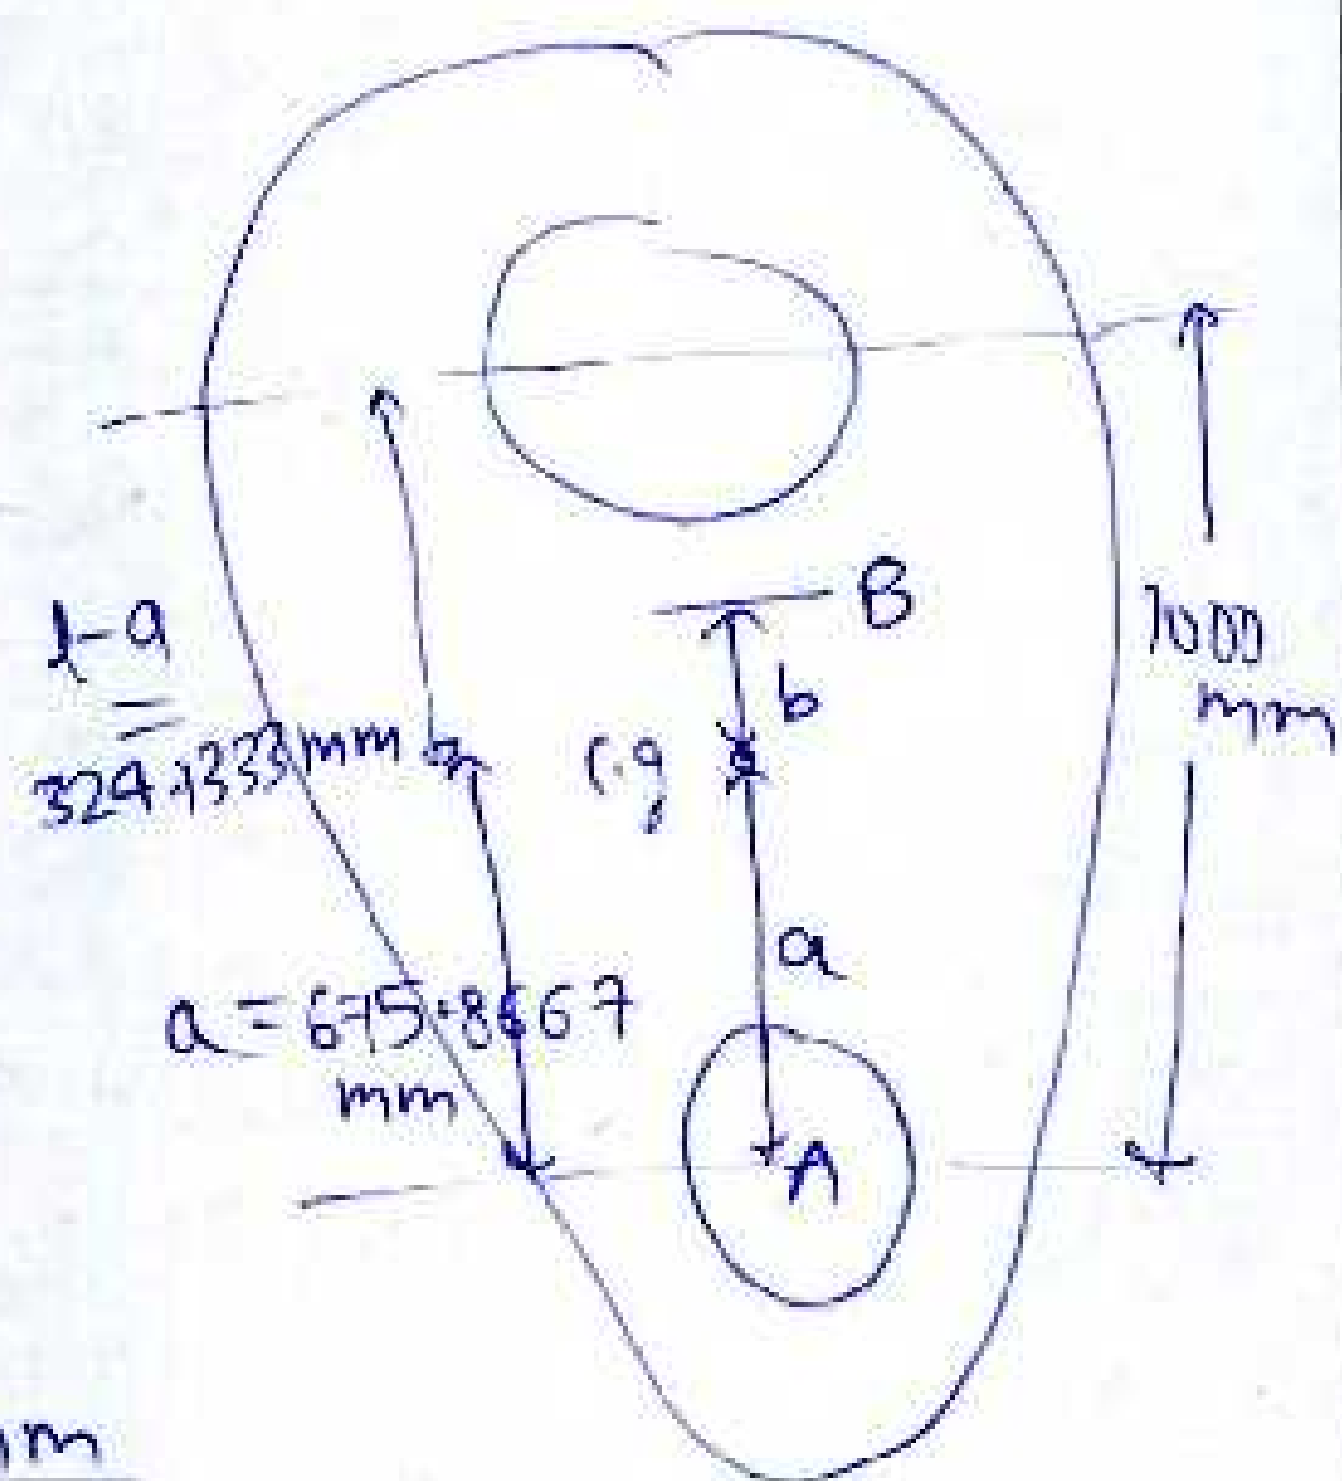 B
b
l-a
=
324.1333 mm
c.g
1000
mm
a
a = 675.8667
mm
A
mm